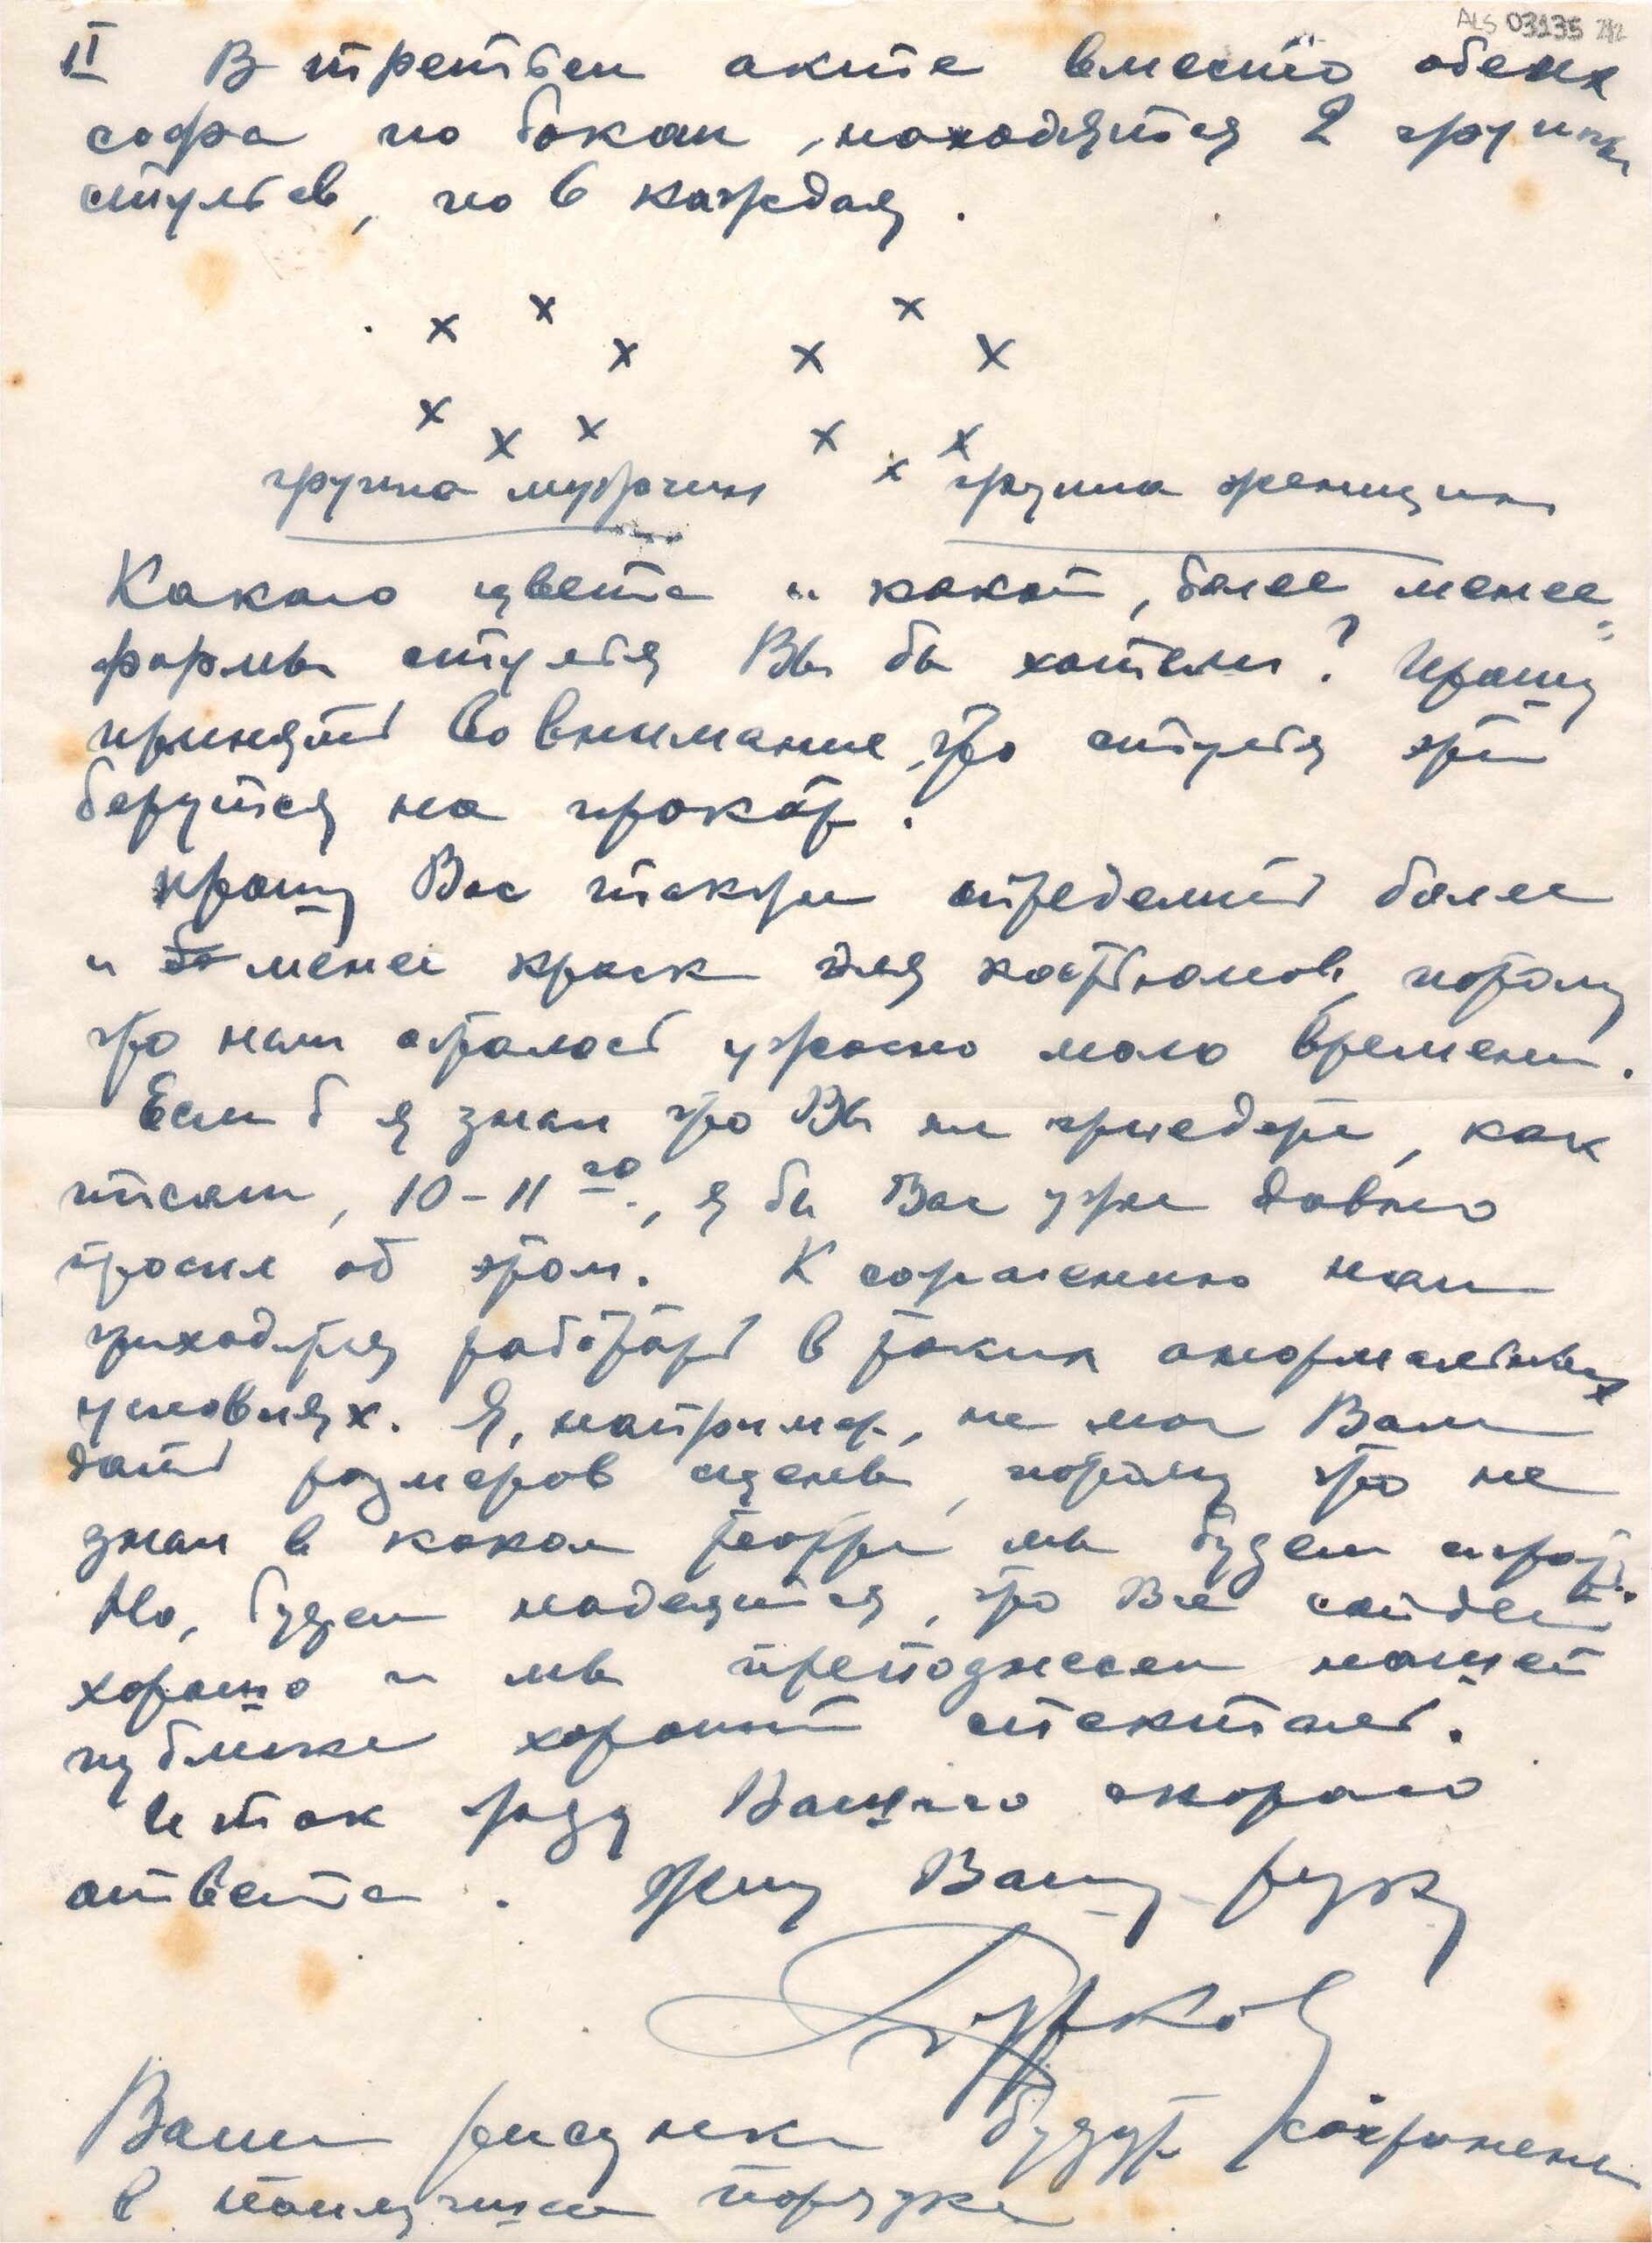 ALS 03135 2/2
II В третьем акте вместо обеих
софа по бокам, находятся 2 группы
стульев, по 6 каждая.
x x x x x x
x x x x x x
группа мужчин группа женщин
Какого цвета и какой, более менее,
формы стулья Вы бы хотели? Прошу
принять во внимание, что стулья эти
берутся на прокат.
Прошу Вас также определить более
и менее краск для костюмов, потому
что нам осталось ужасно мало времени.
Если б я знал что Вы не приедете, как
писали, 10-11го., я бы Вас уже давно
просил об этом. К сожалению нам
приходится работать в таких анормальных
условиях. Я, например, не мог Вам
дать размеров сцены, потому что не
знал в каком театре мы будем играть.
Но, будем надеяться, что Все сойдет
хорошо и мы преподнесем нашей
публике хороший спектакль.
Итак жду Вашего скорого
ответа. Жму Вашу руку
Ваши рисунки будут сохранены
в наилучшем порядке